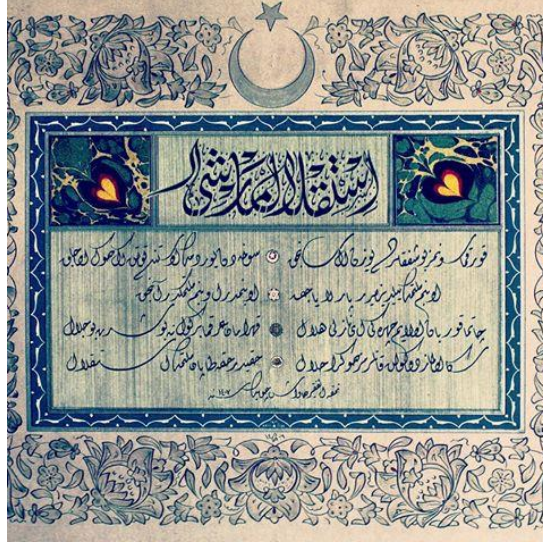 استقلال مارشی
قورقما سونمز بو شفقلرده یوزن آل سنجاق سونمه‌دن یوردمڭ اوستنده توتن اڭ صوڭ اوجاق
او بنم ملتمڭ ییلدیزیدر پارلایاجق او بنمدر او بنم ملتمڭدر آنجق
چاتما قوربان اولایم چهره‌ڭی ای نازلی هلال قهرمان عرقمه بر گول نه بو شدت بو جلال
سڭا اولماز دوکولن قانلریمز صوڭره حلال حقیدر حقه طاپان ملتمڭ استقلال